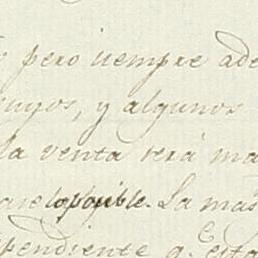 pero siempre ade
suyos, y algunos
la venta será ma
lo posible. La mas
pendiente q. esta